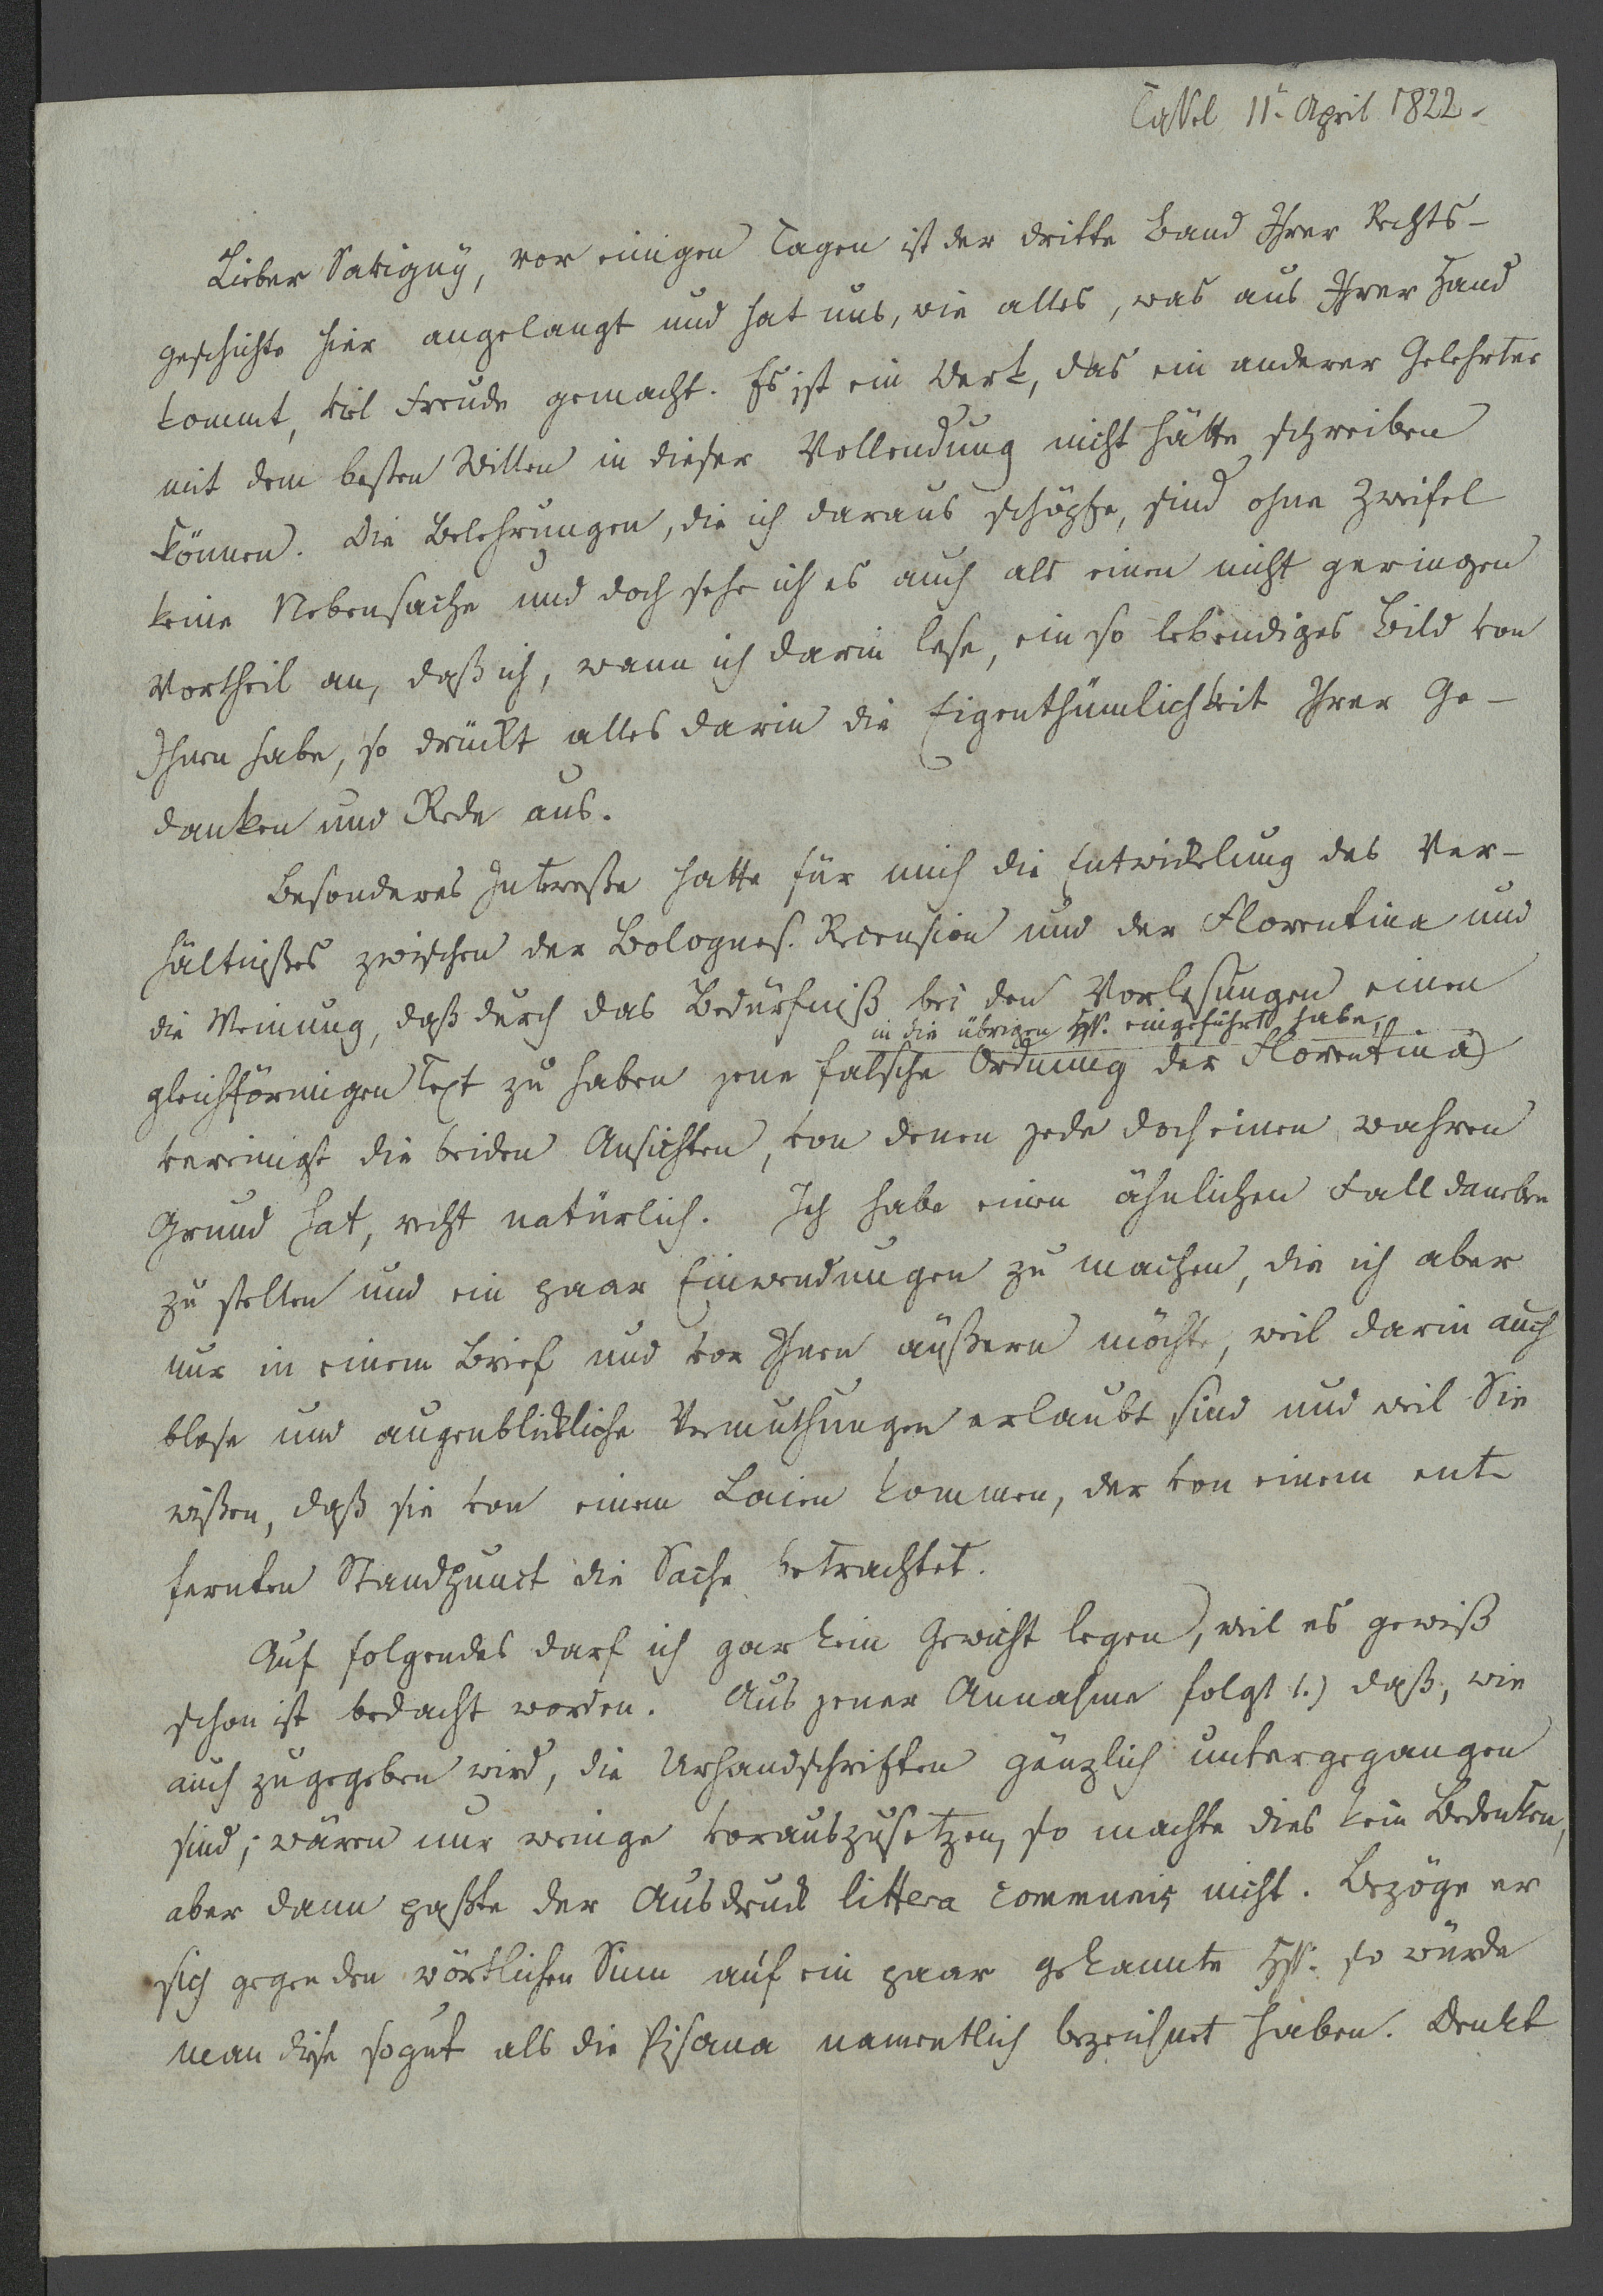 Cassel 11t April 1822.
Lieber Savigny, vor einigen Tagen ist der dritte Band Ihrer Rechts-
geschichte hier angelangt und hat uns, wie alles, was aus Ihrer Hand
kommt, viel Freude gemacht. Es ist ein Werk, das ein anderer Gelehrter
mit dem besten Willen in dieser Vollendung nicht hätte schreiben
können. Die Belehrungen, die ich daraus schöpfe, sind ohne Zweifel
keine Nebensache und doch sehe ich es auch als einen nicht geringen
Vortheil an, daß ich, wann ich darin lese, ein so lebendiges Bild von
Ihnen habe, so drückt alles darin die Eigenthümlichkeit Ihrer Ge-
danken und Rede aus.
Besonderes Interesse hatte für mich die Entwickelung des Ver-
hältnißes zwischen der Bolognes. Recension und der Florentina und
die Meinung, daß durch das Bedürfniß bei den Vorlesungen einen
in die übrigen Hss. eingeführt habe,
gleichförmigen Text zu haben jene falsche Ordnung der Florentina
vereinigt die beiden Ansichten, von denen jede doch einen wahren
Grund hat, recht natürlich. Ich habe einen ähnlichen Fall daneben
zu stellen und ein paar Einwendungen zu machen, die ich aber
nur in einem Brief und vor Ihnen äußern möchte, weil darin auch
blose und augenblickliche Vermuthungen erlaubt sind und weil Sie
wißen, daß sie von einem Laien kommen, der von einem ent-
fernten Standpunct die Sache betrachtet.
Auf folgendes darf ich gar kein Gewicht legen, weil es gewiß
schon ist bedacht worden. Aus jener Annahme folgt 1.) daß, wie
auch zugegeben wird, die Urhandschriften gänzlich untergegangen
sind; wären nur wenige vorauszusetzen, so machte dies kein Bedenken,
aber dann paßte der Ausdruck littera communis nicht. Bezöge er
sich gegen den wörtlichen Sinn auf ein paar gekannte Hss. so würde
man diese sogut als die Pisana namentlich bezeichnet haben. Denkt